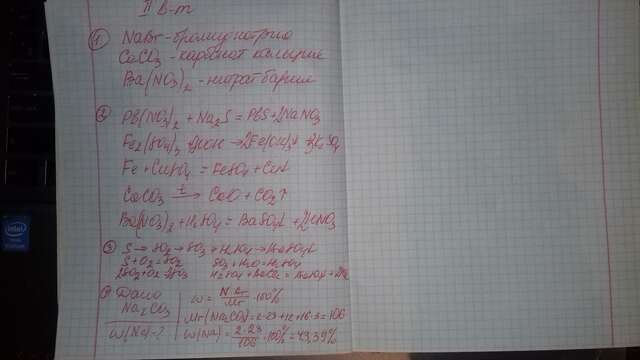 II в-т
① NaBr - бромид натрия
CaCO3 - карбонат кальция
Ba(NO3)2 - нитрат бария
② Pb(NO3)2 + Na2S = PbS↓ + 2NaNO3
Fe2(SO4)3 + 6KOH → 2Fe(OH)3↓ + 3K2SO4
Fe + CuSO4 = FeSO4 + Cu↓
CaCO3 t→ CaO + CO2↑
Ba(NO3)2 + H2SO4 = BaSO4↓ + 2HNO3
③ S → SO2 → SO3 → H2SO4 → BaSO4↓
S + O2 = SO2 SO3 + H2O = H2SO4
2SO2 + O2 = 2SO3 H2SO4 + BaCl2 = BaSO4↓ +
④ Дано
Na2CO3
W(Na) - ?
W = N·Ar/Mr ·100%
Mr(Na2CO3) = 2·23+12+16·3 = 106
W(Na) = 2·23/106 ·100% = 43,39%
intel